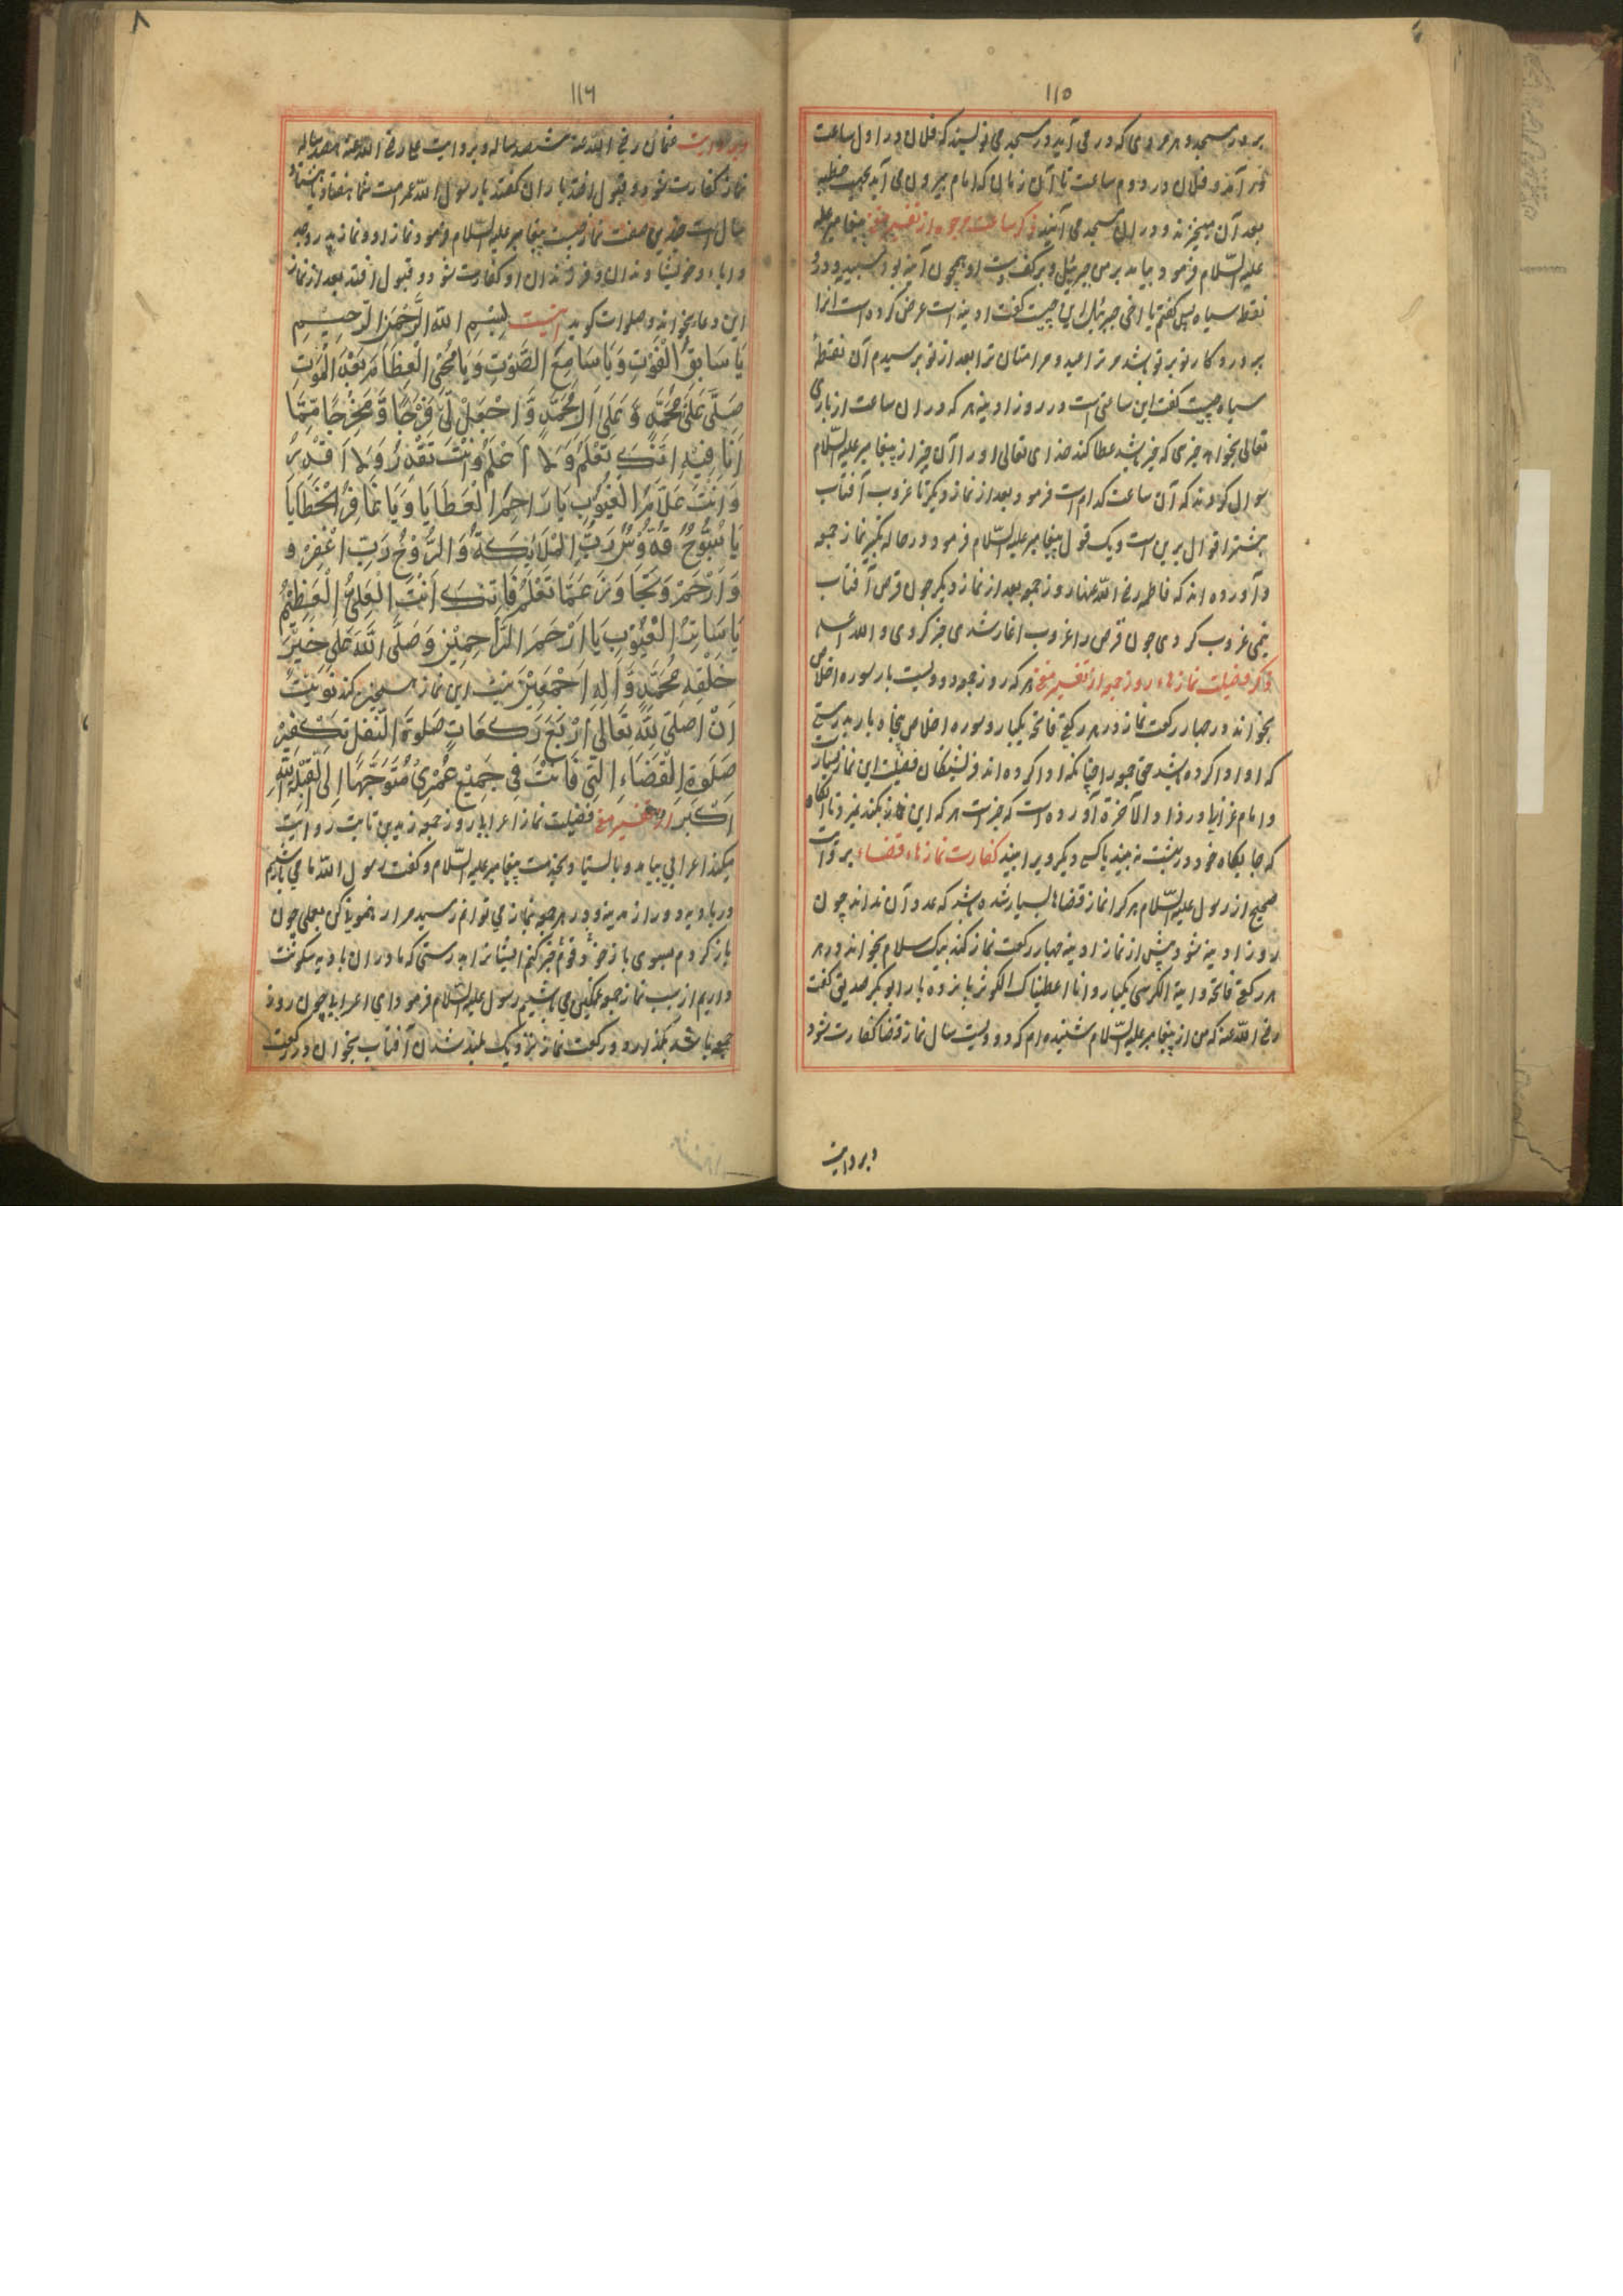 ۱۱۵
بر در مسجد و هر مردی که در می آید در مسجد می نویسند که فلان در اول ساعت
در آمد و فلان در دوم ساعت تا آن زمان که امام بیرون می آید بجهت خطبه
بعد آن میخیزند و در ان مسجد می آیند ذکر ساعت مرجوه از تفسیر مغنی پیغامبر علیه
علیه السّلام فرمود بیامد بر من جبرئیل و بر کف دست او همچون آینه بود سپید و درو
نقطه سیاه پس گفتم یا اخی جبرئیل این چیست گفت ادینه است عرض کرده است انرا
پروردکار تو بر تو باشد مر ترا عید و مر امتان ترا بعد از تو پرسیدم آن نقطهٔ
سیاه چیست گفت این ساعتی است در روز ادینه هر که در ان ساعت از باری
تعالی بخواهد چیزی که خیر باشد عطا کند خدای تعالی او را آن چیز از پیغامبر علیه السّلام
سوال کردند که آن ساعت کدام است فرمود بعد از نماز دیکر تا غروب آفتاب
بیشتر اقوال برین است و یک قول پیغامبر علیه السّلام فرمود در حاله تکبیر نماز جمعه
و آورده اند که فاطمه رضی اللّه عنها روز جمعه بعد از نماز دیکر چون قرص آفتاب
نیمی غروب کردی چون قرص را غروب اغاز شد می خبر کردی و اللّه اعلم
ذکر فضیلت نمازهاء روز جمعه از تفسیر مغنی هر که روز جمعه دو ولیست بار سوره اخلاص
بخواند در چهار رکعت نماز در هر رکعتی فاتحه یکبار و سوره اخلاص پنجاه بار بدرستی
که او ادا کرده باشد حق جمعه را چنانکه ادا کرده اند فریشتکان فضیلت این نماز بسیار است
و امام غزالی در زاد الآخرة آورده است که خبر است هر که این نماز بکند نمیرد تا انکاه
که جایکاه خود در بهشت نه بیند یا کسی دیکر ویرا بیند کفارت نمازهاء قضاء بروایت
صحیح از رسول علیه السّلام هر کرا نماز قضاها بسیار شده باشد که عدد آن نداند چون
روز ادینه شود پیش از نماز ادینه چهار رکعت نماز کند بیک سلام بخواند در هر
هر رکعتی فاتحه و ایة الکرسی یکبار و انا اعطیناک الکوثر پانزده بار ابوبکر صدیق گفت
رضی اللّه عنه که من از پیغامبر علیه السّلام شنیده ام که دو ولیست سال نماز قضا کفارت شود
و بروایت
۱۱۶
و بروایت عثمان رضی اللّه عنه ششصد ساله و بروایت علی رضی اللّه عنه هفصد ساله
نماز کفارت شود و قبول افتد یاران گفتند یا رسول اللّه عمر امت شما هفتاد یا هشتاد
سال است چندین صفت نماز چیست پیغامبر علیه السّلام فرمود نماز او و نماز پدر و جد
و اباء و خویشاوندان و فرزندان او کفارت شود و قبول افتد بعد از نماز
این دعا بخواند و صلوات گوید اینست بِسْمِ اللّهِ الرَّحْمٰنِ الرَّحِيْمِ
يَا سَابِقَ الْفَوْتِ وَيَا سَامِعَ الصَّوْتِ وَيَا مُحْيِ الْعِظَامَ بَعْدَ الْمَوْتِ
صَلِّ عَلَى مُحَمَّدٍ وَّ عَلَى اٰلِ مُحَمَّدٍ وَّ اجْعَلْ لِيْ فَرَجًا وَّ مَخْرَجًا مِّمَّا
اَنَا فِيْهِ اِنَّكَ تَعْلَمُ وَلَا اَعْلَمُ وَاَنْتَ تَقْدِرُ وَلَا اَقْدِرُ
وَ اَنْتَ عَلَّامُ الْغُيُوْبِ يَا رَاحِمَ الْعَطَايَا وَيَا غَافِرَ الْخَطَايَا
يَا سُبُّوْحٌ قُدُّوْسٌ رَبُّ الْمَلٰئِكَةِ وَ الرُّوْحِ رَبِّ اغْفِرْ و
وَ ارْحَمْ وَ تَجَاوَزْ عَمَّا تَعْلَمُ فَاِنَّكَ اَنْتَ الْعَلِيُّ الْعَظِيْمُ
يَا سَاتِرَ الْعُيُوْبِ يَا اَرْحَمَ الرَّاحِمِيْنَ وَ صَلَّى اللّٰهُ عَلٰى خَيْرِ
خَلْقِهِ مُحَمَّدٍ وَّ اٰلِهِ اَجْمَعِيْنَ نیت این نماز همچنین کند نَوَيْتُ
اَنْ اُصَلِّيَ لِلّٰهِ تَعَالٰى اَرْبَعَ رَكَعَاتٍ صَلٰوةَ النَّفْلِ تَكْفِيْرَ
صَلٰوةِ الْقَضَاءِ الَّتِيْ فَاتَتْ فِيْ جَمِيْعِ عُمْرِيْ مُتَوَجِّهًا اِلَى الْقِبْلَةِ اللّٰهُ
اَكْبَر از تفسیر مغنی فضیلت نماز اعرابی روز جمعه زید بن ثابت روایت
میکند اعرابی بیامد و بایستاد بخدمت پیغامبر علیه السّلام و گفت رسول اللّه ما می باشیم
در بادیه و دور از مدینه و در هر جمعه بنماز می توانم رسید مرا رهنمونی کن بعملی چون
باز کردم بسوی باز خود و قوم خبر کنم ایشانرا بدرستی که ما در ان بادیه سکونت
داریم از سبب نماز جمعه غمکین می باشیم رسول علیه السّلام فرمود ای اعرابی چون روز
جمعه باشد بگذار دو رکعت نماز نزدیک بلند شدن آفتاب بخوان در رکعت